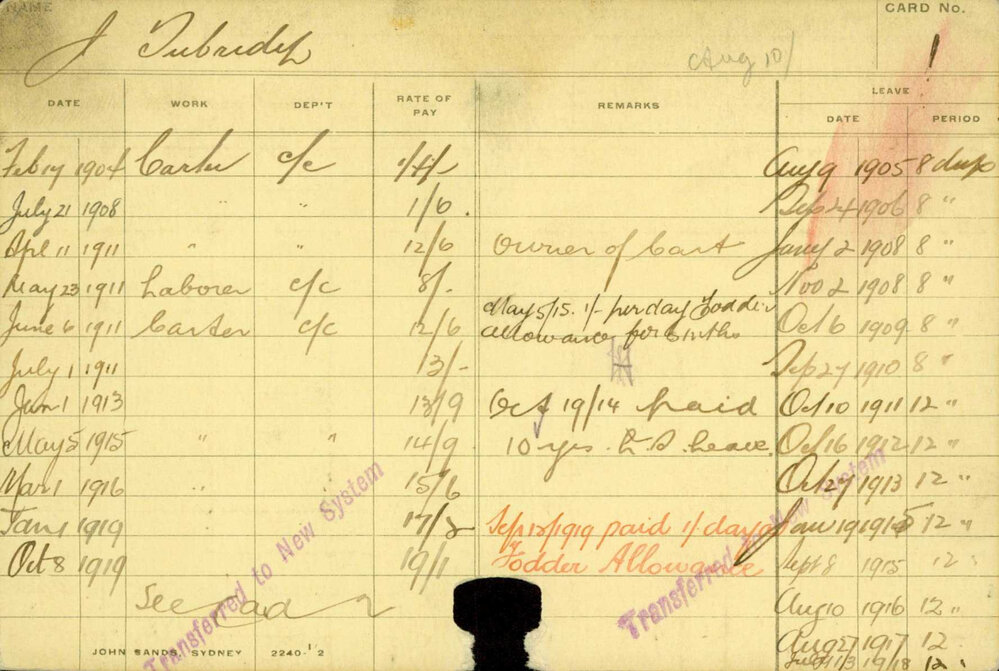 NAME
CARD No.
J Tubridy
Aug 10/
1
DATE WORK DEP'T RATE OF PAY REMARKS LEAVE
DATE PERIOD
Feb 17 1904 Carter c/c Aug 9 1905 8 days
July 21 1908 " " 1/6. Sep 24 1906 8 "
Apl 11 1911 " " 12/6 Owner of Cart Jany 2 1908 8 "
May 23 1911 Laborer c/c 8/. Nov 2 1908 8 "
May 5/15. 1/- per day Fodder
June 6 1911 Carter c/c 12/6 allowance for 6 mths Oct 6 1909 8 "
July 1 1911 13/- Sep 27 1910 8 "
Jan 1 1913 13/9 Oct 19/14 paid Oct 10 1911 12 "
May 5 1915 " " 14/9 10 yrs. L. S. Leave. Oct 16 1912 12 "
Mar 1 1916 " 15/6 Oct 27 1913 12 "
Jan 1 1919 17/3 Sep 13/1919 paid 1/ day Jan 19 1915 12 "
Oct 8 1919 19/1 Fodder Allowance Sept 8 1915 12 "
See Card 2 Aug 10 1916 12 "
Aug 27 1917 12
1918 12
Transferred to New System
Transferred to New System
JOHN SANDS, SYDNEY 2240-1/2